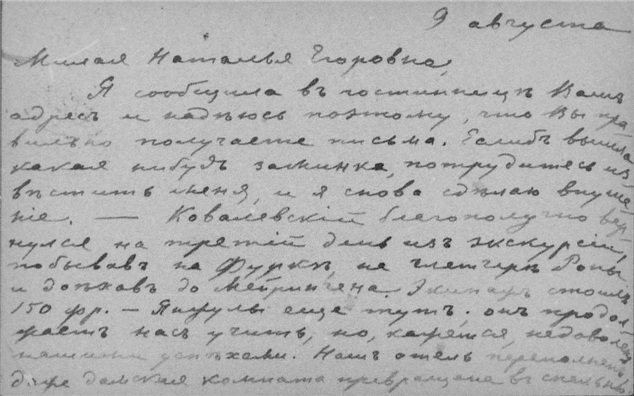 9 августа
Милая Наталья Егоровна,
Я сообщила въ гостинницѣ Вашъ
адресъ и надѣюсь поэтому, что Вы пра-
вильно получаете письма. Еслибъ вышла
какая нибудь заминка, потрудитесь из-
вѣстить меня, и я снова сдѣлаю внуше-
ніе. — Ковалевскій благополучно вер-
нулся на третій день изъ экскурсіи,
побывавъ на Фуркѣ, на глетчерѣ Роны
и доѣхавъ до Мейрингена. Экипажъ стоилъ
150 фр. — Янжулы еще тутъ. Онъ продол-
жаетъ насъ учить, но, кажется, недоволенъ
нашими успѣхами. Нашъ отель переполненъ,
даже дамская комната превращена въ спальню.